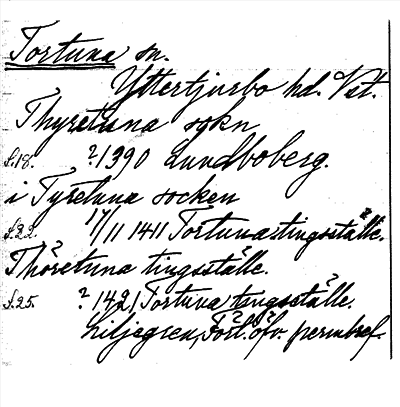 Tortuna sn.
Yttertjurbo hd. Vst.
Thyretuna sokn
s.18. ? 1390 Lundboberg.
i Tyretuna socken
s.22. 17/11 1411 Tortuna tingsställe.
Thoretuna tingsställe.
s.25. ? 1421 Tortuna tingsställe.
Liljegren, Fört. öfv. permbref.